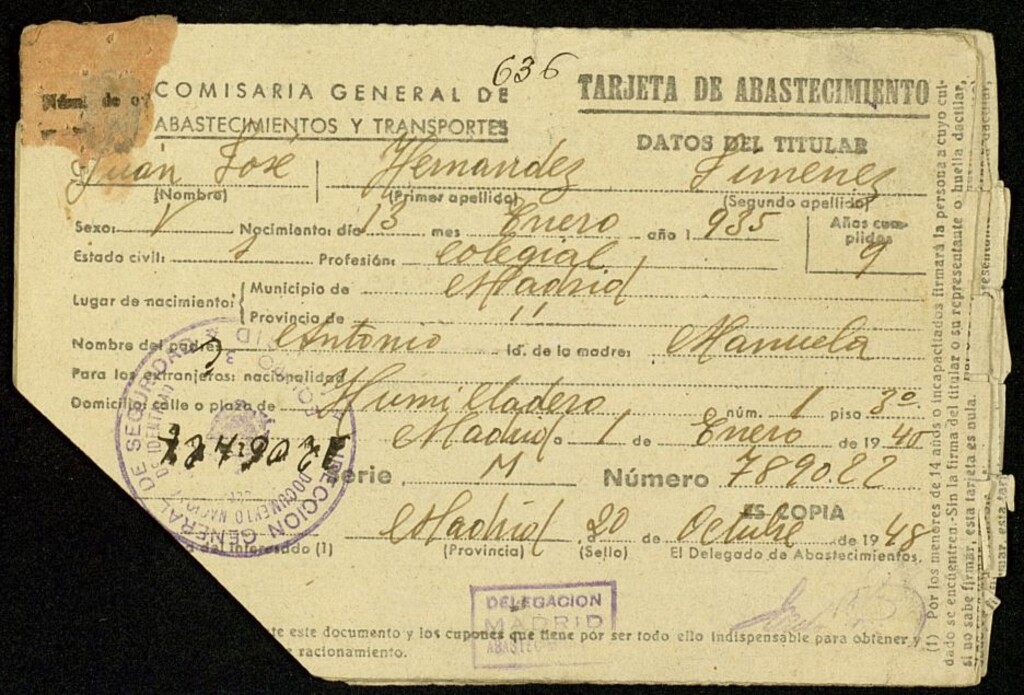 636
COMISARIA GENERAL DE
ABASTECIMIENTOS Y TRANSPORTES
TARJETA DE ABASTECIMIENTO
DATOS DEL TITULAR
Núm. de
Juan José Hernandez Jimenez
(Nombre) (Primer apellido) (Segundo apellido)
Sexo: V Nacimiento: día 13 mes Enero año 1 935
Años cumplidos 9
Estado civil: s Profesión: Colegial
Lugar de nacimiento: Municipio de Madrid
Provincia de "
Nombre del padre: Antonio Id. de la madre: Manuela
Para los extranjeros: nacionalidad
Domicilio: calle o plaza de Humilladero núm. 1 piso 3º
Madrid a 1 de Enero de 19 40
Serie M Número 789022
ES COPIA
Madrid 20 de Octubre de 19 48
(Provincia) (Sello) El Delegado de Abastecimientos,
del interesado (1)
DIRECCION GENERAL DE SEGURIDAD
DOCUMENTO NACIONAL DE IDENTIDAD
DELEGACION
MADRID
te este documento y los cupones que tiene por ser todo ello indispensable para obtener
racionamiento.
(1) Por los menores de 14 años o incapacitados firmará la persona a cuyo cui-
dado se encuentren.-Sin la firma del titular o su representante o huella dactilar,
si no sabe firmar, esta tarjeta es nula.